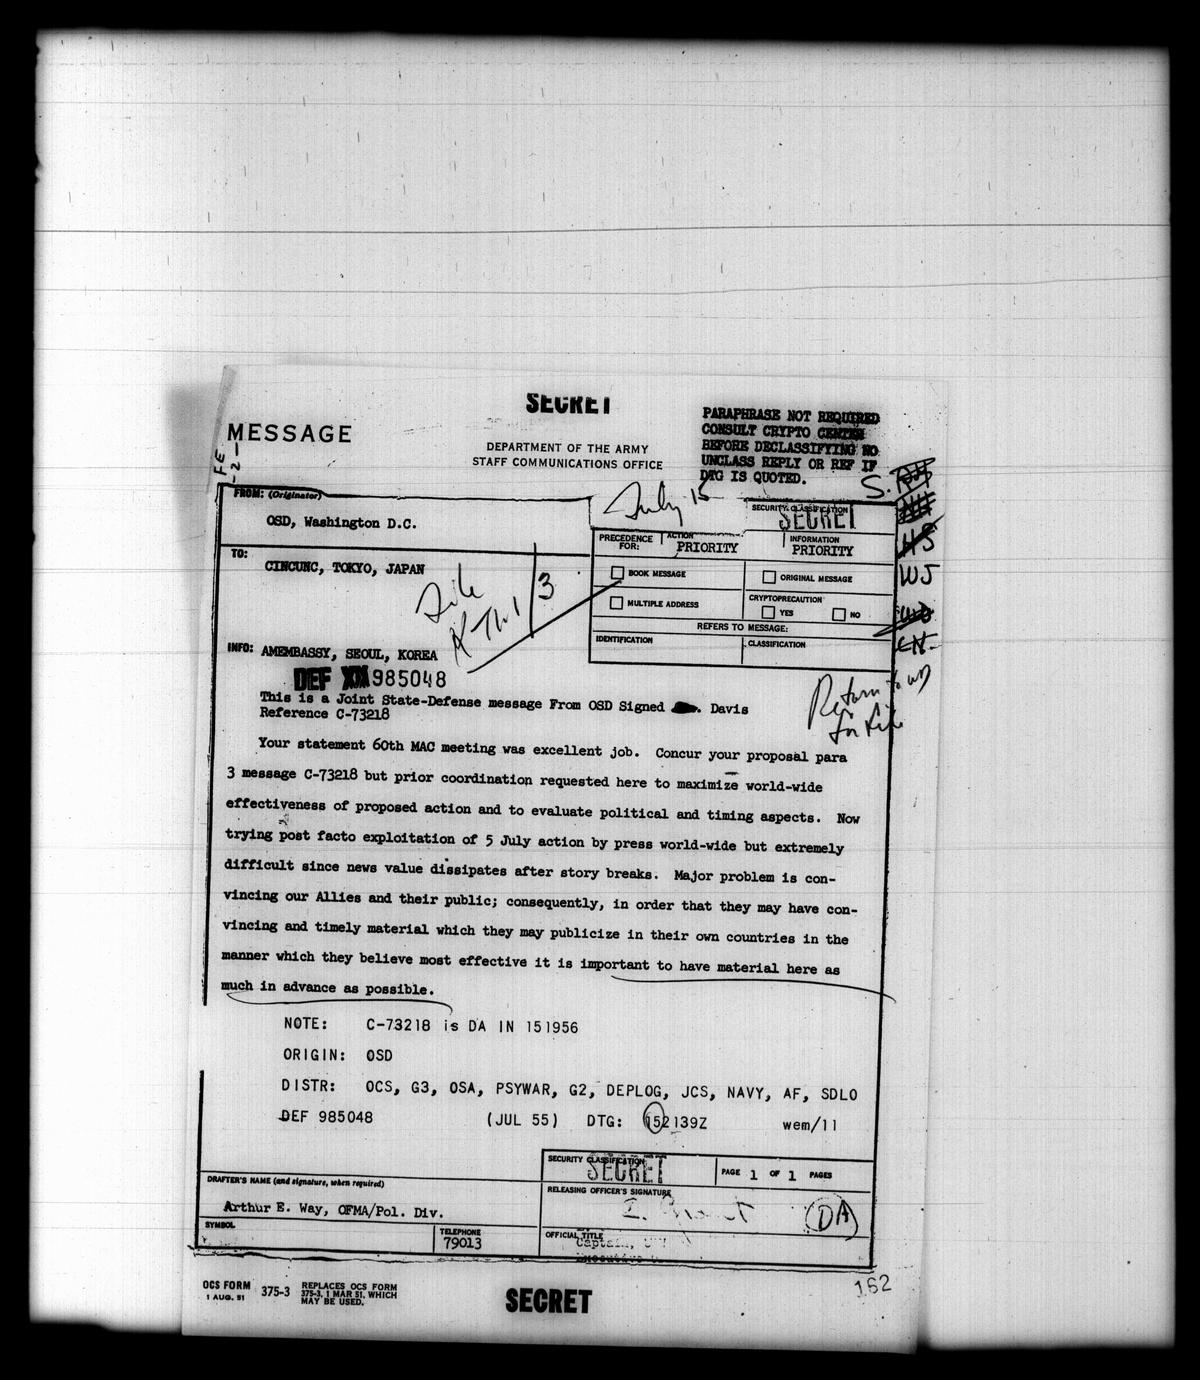 SECRET
PARAPHRASE NOT REQUIRED
CONSULT CRYPTO CENTER
BEFORE DECLASSIFYING NO
UNCLASS REPLY OR REF IF
DTG IS QUOTED.
MESSAGE
DEPARTMENT OF THE ARMY
STAFF COMMUNICATIONS OFFICE
FE
-2-
July 15
S.
FROM: (Originator)
OSD, Washington D.C.
SECURITY CLASSIFICATION
SECRET
PRECEDENCE FOR:
ACTION
PRIORITY
INFORMATION
PRIORITY
HS
WJ
TO:
CINCUNC, TOKYO, JAPAN
File
3
BOOK MESSAGE
ORIGINAL MESSAGE
MULTIPLE ADDRESS
CRYPTOPRECAUTION
YES
NO
REFERS TO MESSAGE:
IDENTIFICATION
CLASSIFICATION
INFO: AMEMBASSY, SEOUL, KOREA
DEF 985048
Return to
for file
This is a Joint State-Defense message From OSD Signed Davis
Reference C-73218
Your statement 60th MAC meeting was excellent job. Concur your proposal para
3 message C-73218 but prior coordination requested here to maximize world-wide
effectiveness of proposed action and to evaluate political and timing aspects. Now
trying post facto exploitation of 5 July action by press world-wide but extremely
difficult since news value dissipates after story breaks. Major problem is con-
vincing our Allies and their public; consequently, in order that they may have con-
vincing and timely material which they may publicize in their own countries in the
manner which they believe most effective it is important to have material here as
much in advance as possible.
NOTE: C-73218 is DA IN 151956
ORIGIN: OSD
DISTR: OCS, G3, OSA, PSYWAR, G2, DEPLOG, JCS, NAVY, AF, SDLO
DEF 985048 (JUL 55) DTG: 152139Z wem/11
SECURITY CLASSIFICATION
SECRET
PAGE 1 OF 1 PAGES
DRAFTER'S NAME (and signature, when required)
Arthur E. Way, OFMA/Pol. Div.
RELEASING OFFICER'S SIGNATURE
DA
SYMBOL
TELEPHONE
79013
OFFICIAL TITLE
Captain,
OCS FORM
1 AUG. 51
375-3
REPLACES OCS FORM
375-3, 1 MAR 51, WHICH
MAY BE USED.
SECRET
162